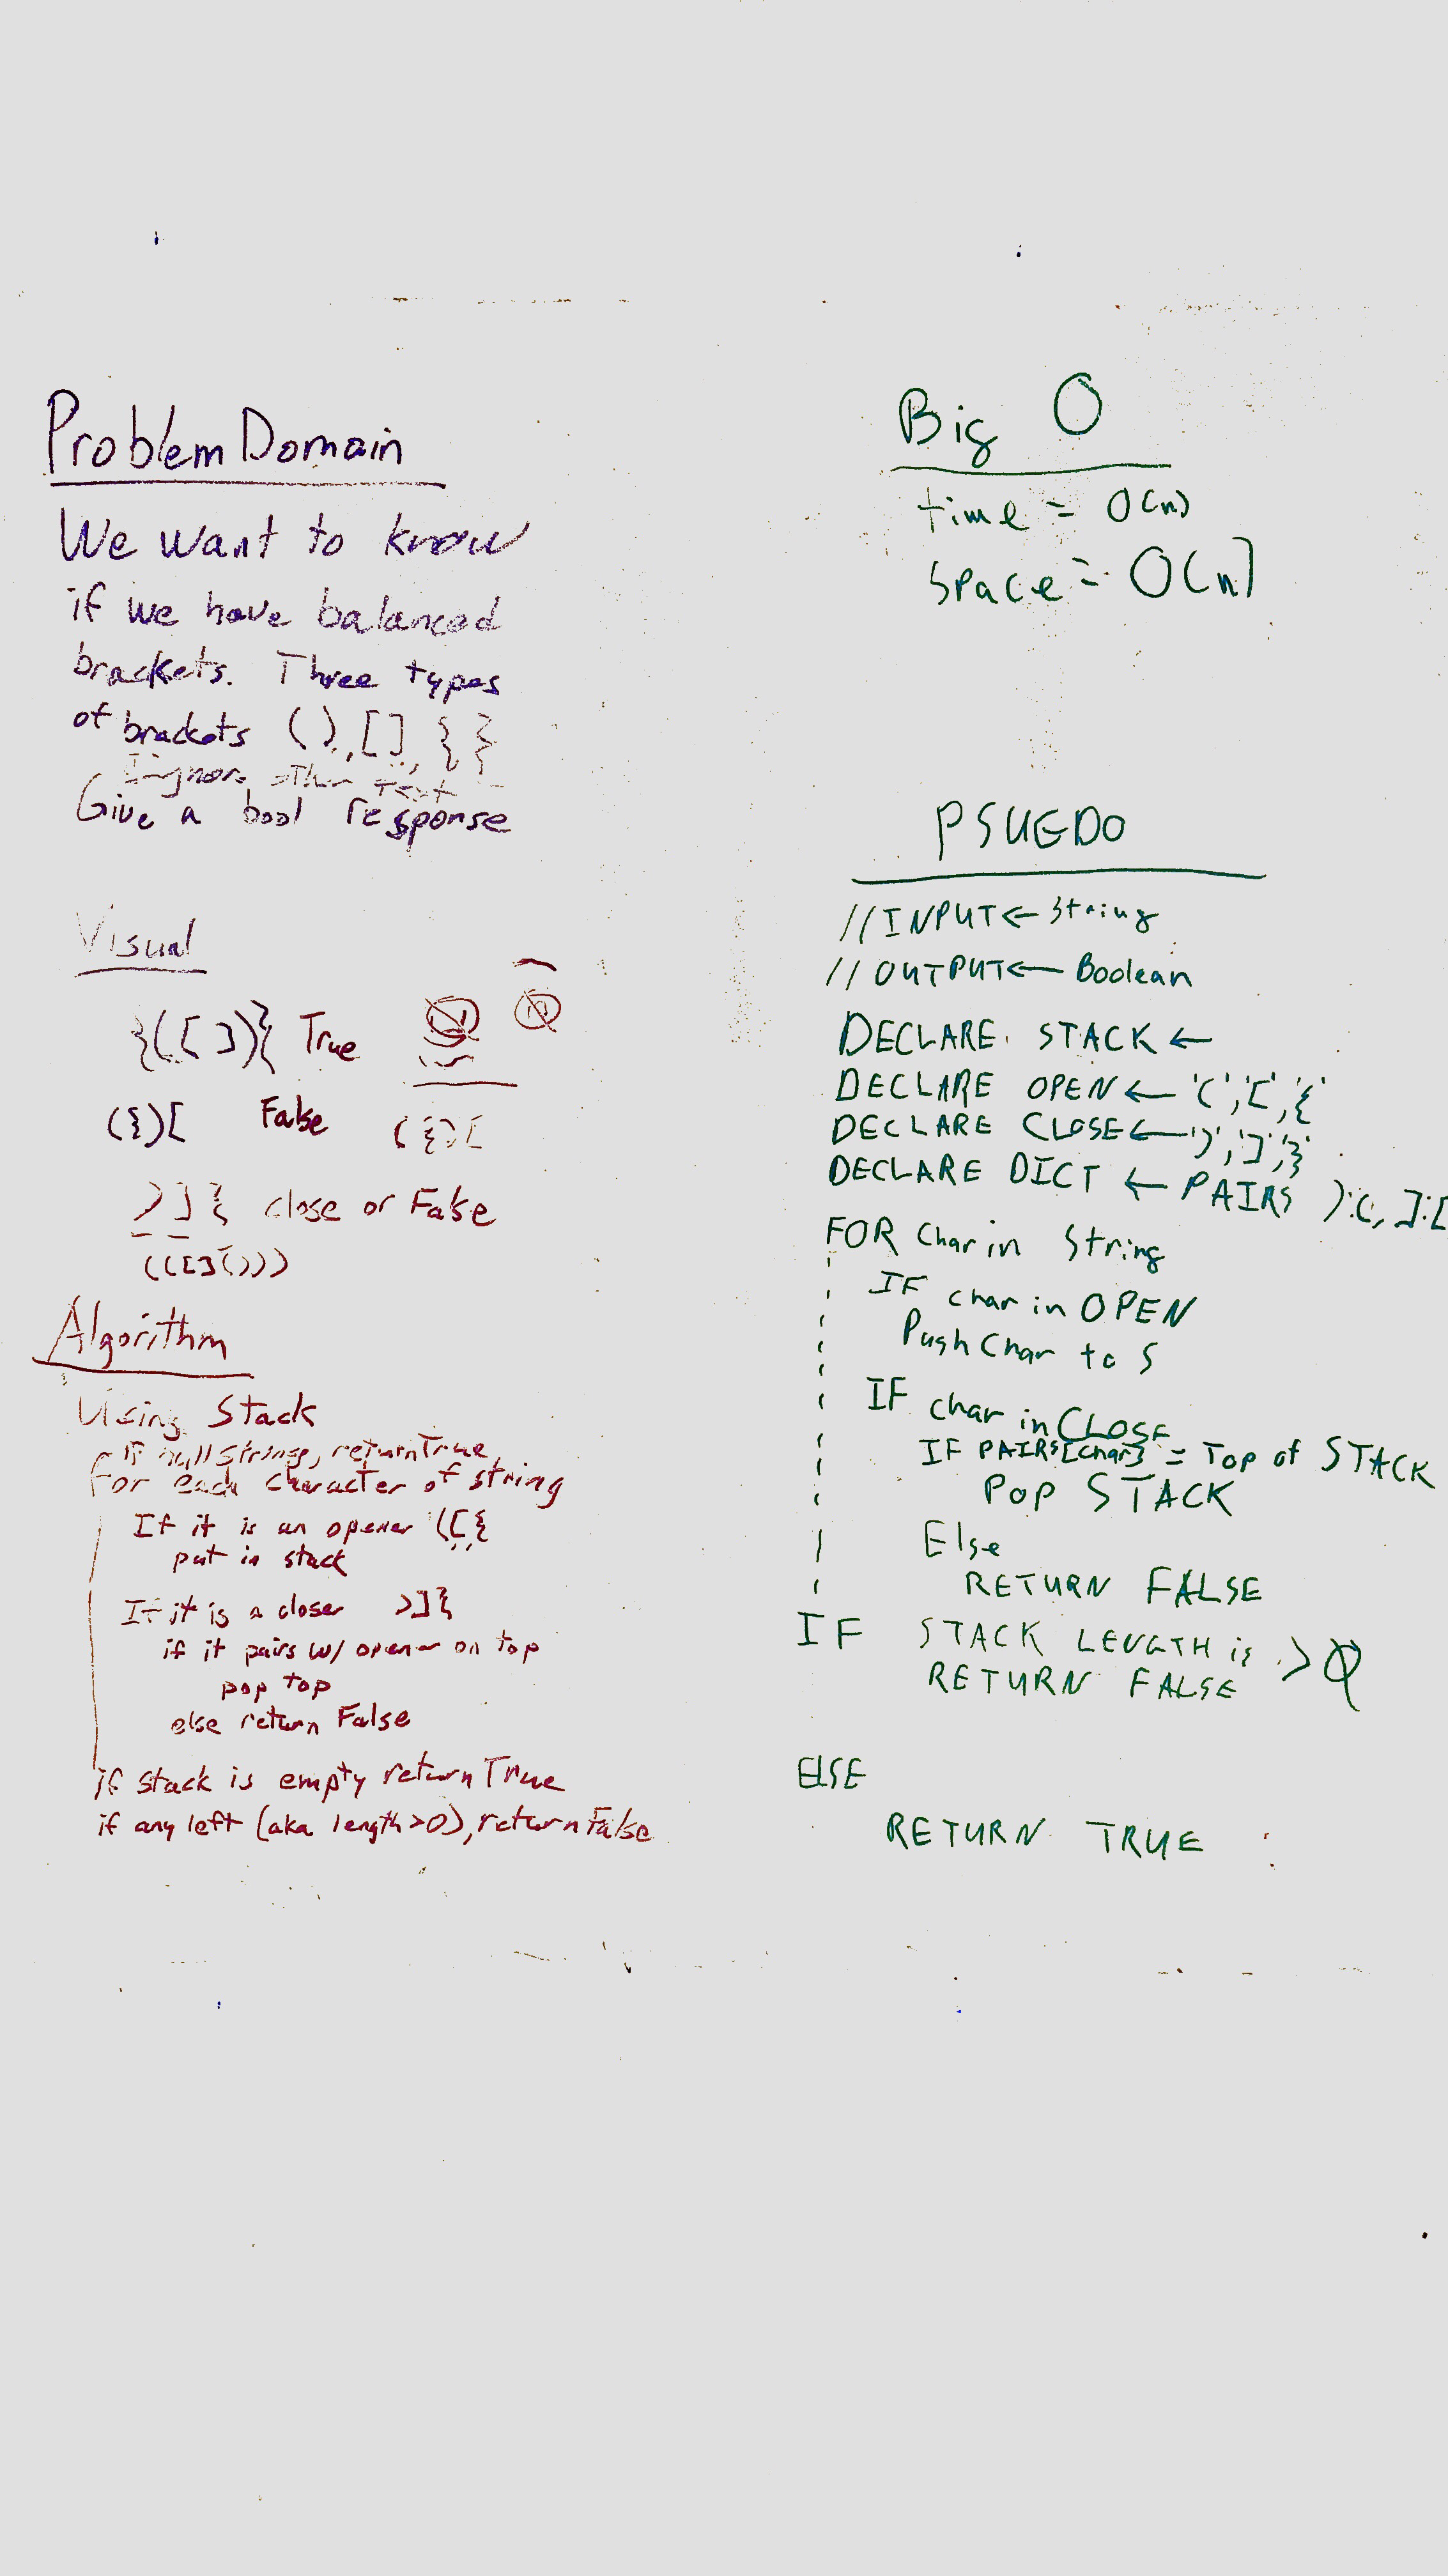 Problem Domain
We want to know
if we have balanced
brackets. Three types
of brackets (), [], { }
Ignore other Text
Give a bool response
Visual
{([])} True
({)[ False ({)[
)]} close or False
(([]()))
Algorithm
Using Stack
if null strings, return True
For each character of string
If it is an opener ([{
put in stack
If it is a closer )]}
if it pairs w/ opener on top
pop top
else return False
if stack is empty return True
if any left (aka length>0), return False
Big O
time = O(n)
space = O(n)
PSUEDO
//INPUT ← String
//OUTPUT ← Boolean
DECLARE STACK ←
DECLARE OPEN ← '(','[','{'
DECLARE CLOSE ← ')',']','}'
DECLARE DICT ← PAIRS ):(, ]:[
FOR Char in String
IF char in OPEN
Push Char to S
IF char in CLOSE
IF PAIRS[char] = Top of STACK
POP STACK
Else
RETURN FALSE
IF STACK LENGTH is > 0
RETURN FALSE
ELSE
RETURN TRUE